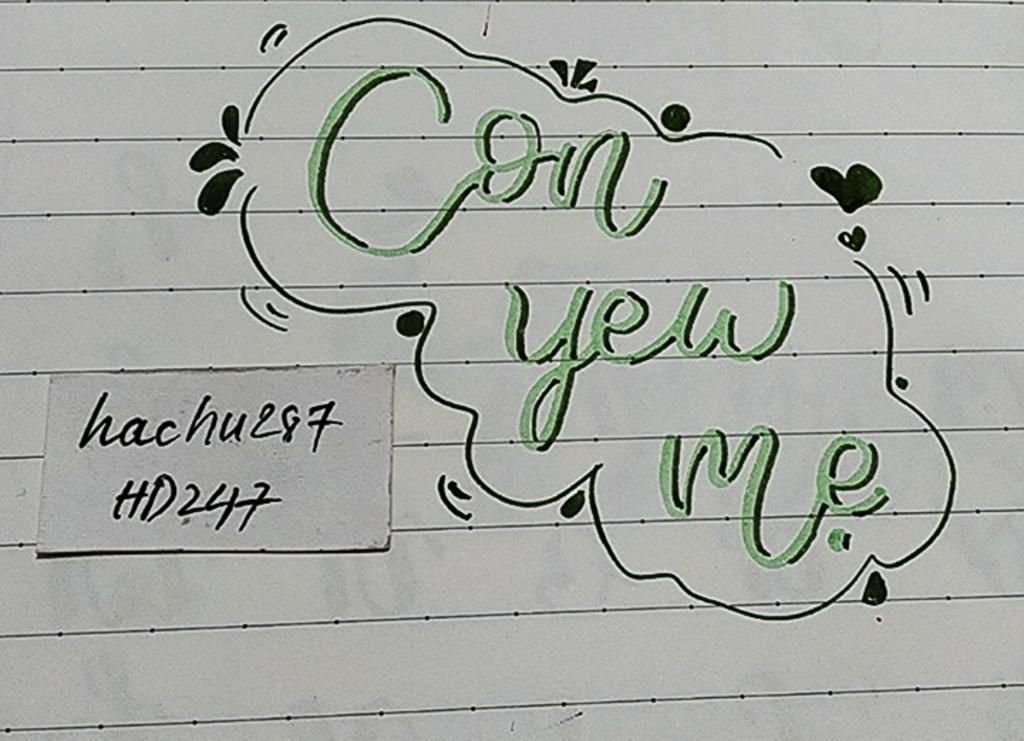 Con
yew
mẹ
hachu287
HD247